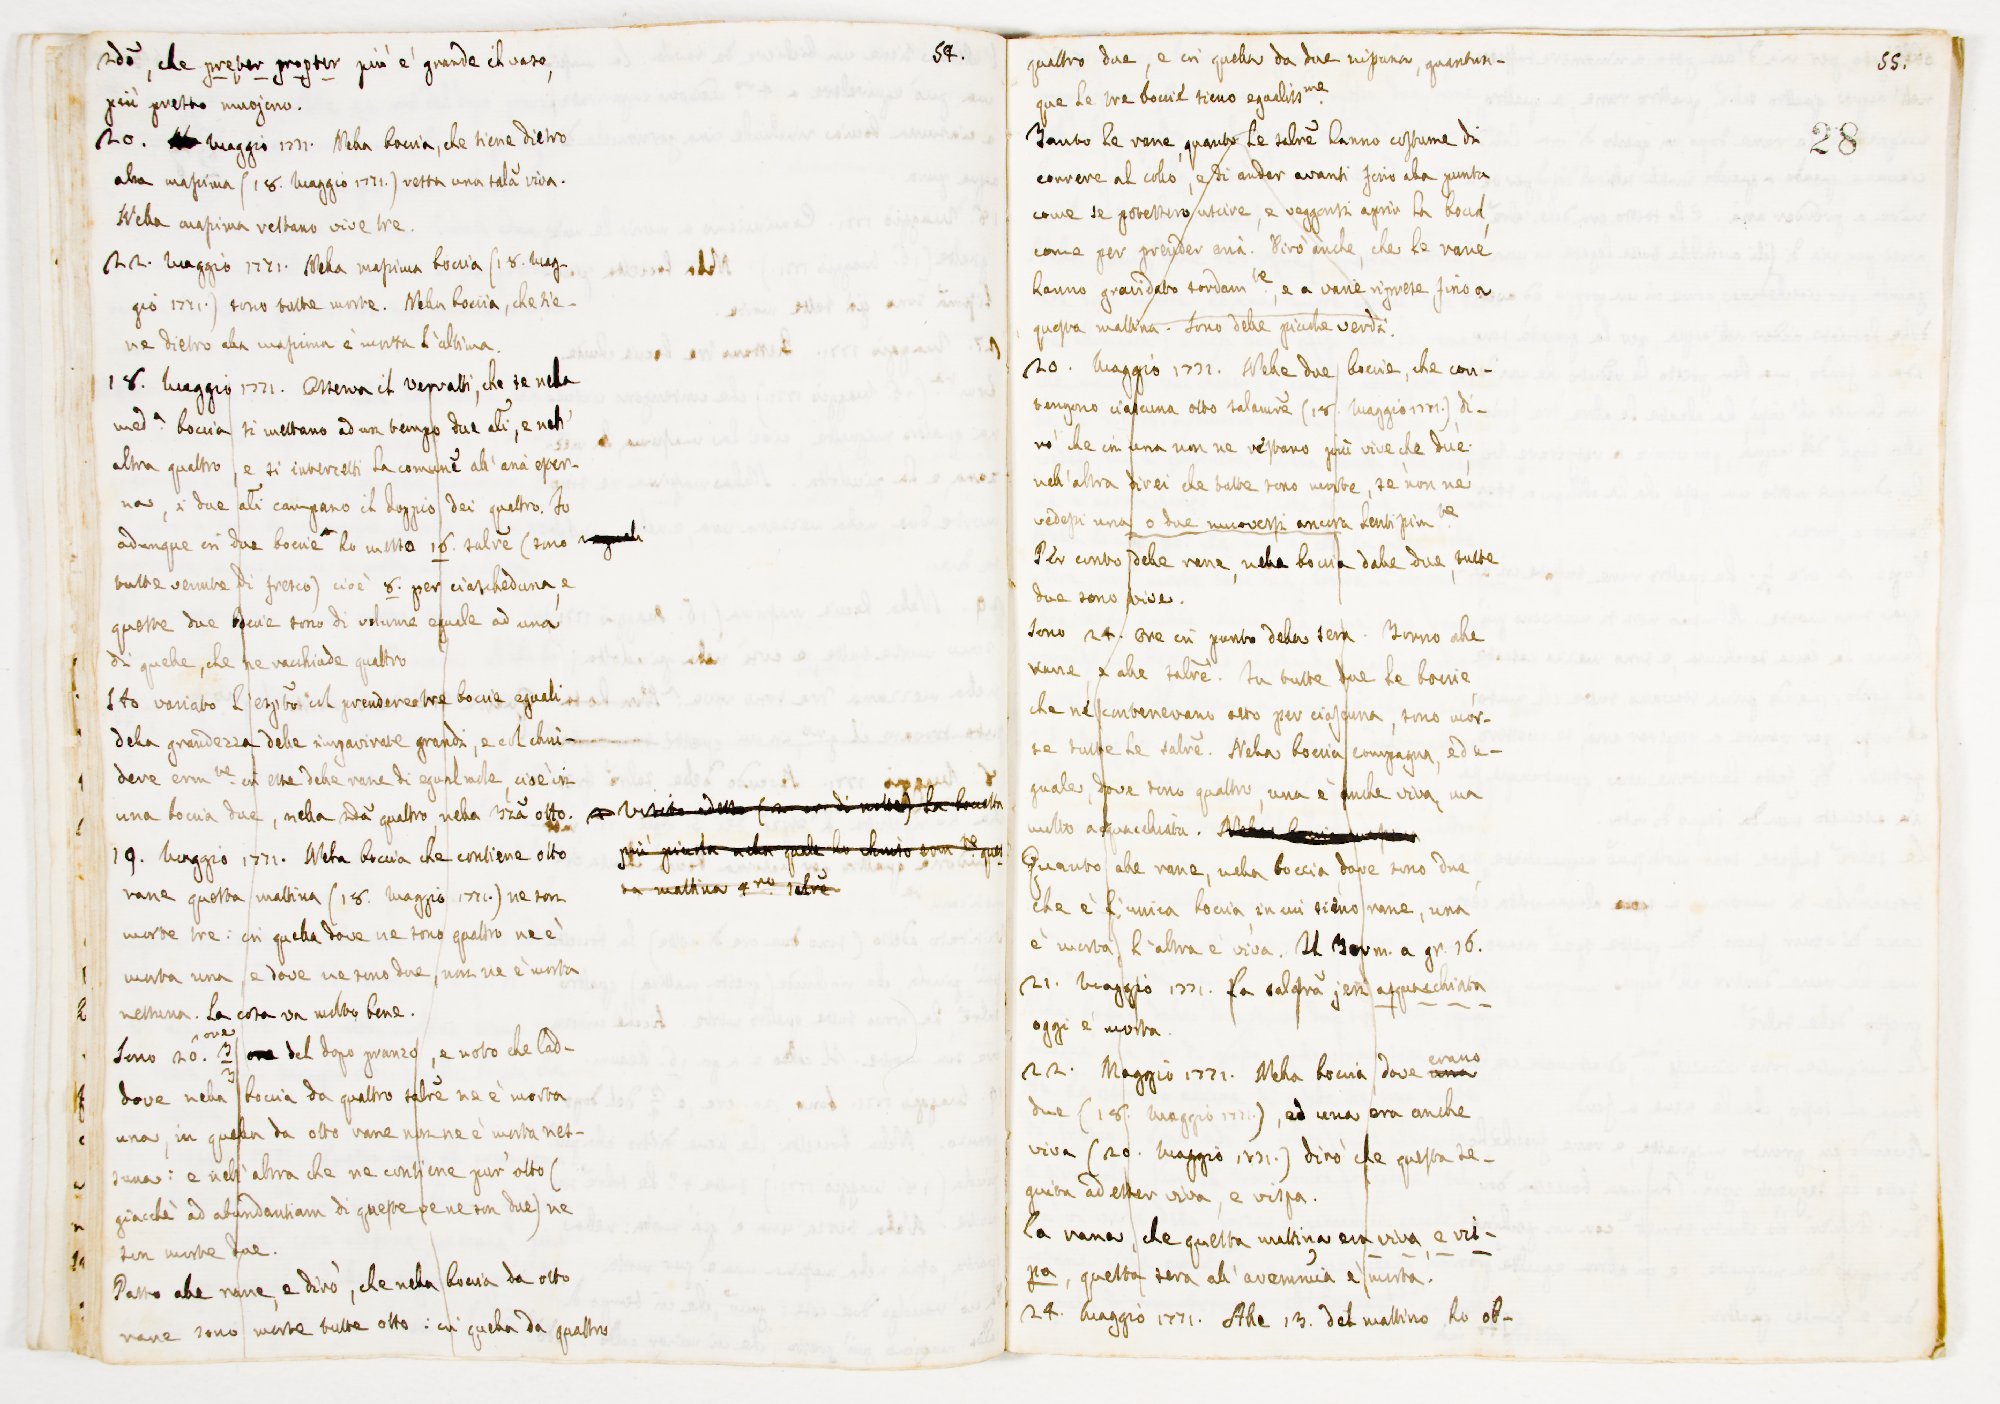 54.
2dõ, che preter propter più è grande il vaso,
più presto muojono.
20. Maggio 1771. Nella boccia, che tiene dietro
alla massima (18. Maggio 1771.) resta una salã viva.
Nella massima restano vive tre.
22. Maggio 1771. Nella massima boccia (18. Mag-
gio 1771.) sono tutte morte. Nella boccia, che tie-
ne dietro alla massima è morta l'ultima.
18. Maggio 1771. Osserva il Verratti, che se nella
med.ª boccia si mettano ad un tempo due ali, e nell'
altra quattro, e si intercetti la comunẽ all'aria ester-
na, i due ali campano il doppio dei quattro. Io
adunque in due boccie ho messe 16. salrẽ (sono
tutte venute di fresco) cioè 8. per ciascheduna, e
queste due boccie sono di volume eguale ad una
di quelle, che ne racchiude quattro
Hò variato l'esptõ col prendere tre boccie eguali
della grandezza delle singavirate grandi, e col chiu-
dere erm.te in esse delle rane di egual mole, cioè in
una boccia due, nella 2dã quattro, nella 3zã otto.
19. Maggio 1771. Nella boccia che contiene otto
rane questa mattina (18. Maggio 1771.) ne son
morte tre: in quella dove ne sono quattro ne è
morta una, e dove ne sono due, non ne è morta
nessuna. La cosa va molto bene.
Sono 20. ore ½ ore del dopo pranzo, e noto che lad-
dove nella boccia da quattro salrẽ ne è morta
una, in quella da otto rane non ne è morta nes-
suna: e nell'altra che ne contiene pur'otto (
giacchè ad abundantiam di queste ve ne son due) ne
son morte due.
Passo alle rane, e dirò, che nella boccia da otto
rane sono morte tutte otto: in quella da quattro
Visito adesso (2 or. di notte) la boccetta
più piccola nella quale ho chiuso erm.te ques
ta mattina 4.ro salrẽ
55.
28
quattro due, e in quella da due nissuna, quantun-
que le tre boccie sieno egualiss.me
Tanto le rane, quanto le salrẽ hanno costume di
correre al collo, e di andar avanti fino alla punta
come se potessero uscire, e veggonsi aprir la bocca,
come per prender aria. Dirò anche, che le rane
hanno gracidato sordam.te, e a varie riprese fino a
questa mattina. Sono delle picciole verdi.
20. Maggio 1771. Nelle due boccie, che con-
tengono ciascuna otto salamrẽ (18. Maggio 1771.) di-
rò che in una non ne restano più vive che due;
nell'altra direi che tutte sono morte, se non ne
vedessi una o due muoversi ancora lentissim.te
Per conto delle rane, nella boccia dalle due, tutte
due sono vive.
Sono 24. ore in punto della sera. Torno alle
rane, e alle salrẽ. In tutte due le boccie,
che ne contenevano otto per ciascuna, sono mor-
te tutte le salrẽ. Nella boccia compagna, ed e-
guale, dove sono quattro, una è anche viva, ma
molto acquacchiata.
Quanto alle rane, nella boccia dove sono due,
che è l'unica boccia in cui sieno rane, una
è morta, l'altra è viva. Il Term. a gr. 16.
21. Maggio 1771. La salafrã jeri acquacchiata
oggi è morta.
22. Maggio 1771. Nella boccia dove erano
due (18. Maggio 1771.), ed una era anche
viva (20. Maggio 1771.) dirò che questa se-
guita ad esser viva, e vispa.
La rana, che questa mattina era viva, e vis-
pa, questa sera all'avemmaria è morta.
24. Maggio 1771. Alle 13. del mattino ho os-